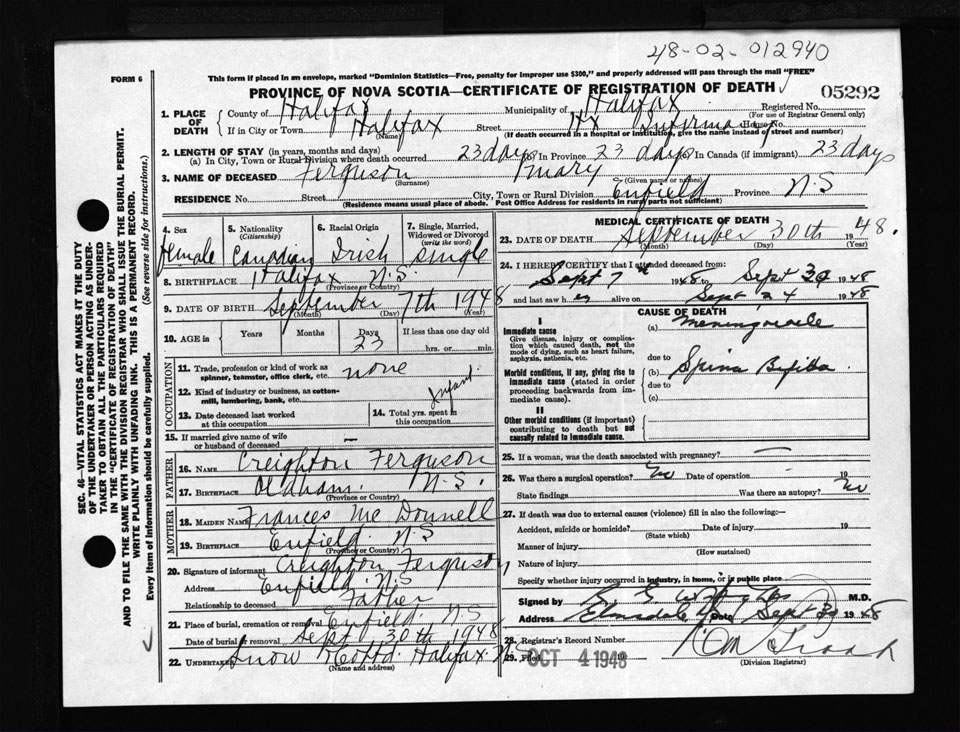 48-02-012940
FORM 6
This form if placed in an envelope, marked "Dominion Statistics—Free, penalty for improper use $300," and properly addressed will pass through the mail "FREE"
PROVINCE OF NOVA SCOTIA—CERTIFICATE OF REGISTRATION OF DEATH 05292
1. PLACE OF DEATH
County of Halifax Municipality of Halifax Registered No.
(For use of Registrar General only)
If in City or Town Halifax Street Hx Infirmary House No.
(Name) (If death occurred in a hospital or institution, give the name instead of street and number)
2. LENGTH OF STAY (in years, months and days)
(a) In City, Town or Rural Division where death occurred 23 days In Province 23 days In Canada (if immigrant) 23 days
3. NAME OF DECEASED Ferguson Mary
(Surname) (Given name or names)
RESIDENCE No. Street City, Town or Rural Division Enfield Province N.S
(Residence means usual place of abode. Post Office Address for residents in rural parts not sufficient)
4. Sex 5. Nationality (Citizenship) 6. Racial Origin 7. Single, Married, Widowed or Divorced (write the word)
female Canadian Irish single
8. BIRTHPLACE Halifax N.S.
(Province or Country)
9. DATE OF BIRTH September 7th 1948
(Month) (Day) (Year)
10. AGE in Years Months Days 23 If less than one day old
hrs. or min.
OCCUPATION
11. Trade, profession or kind of work as spinner, teamster, office clerk, etc. none
12. Kind of industry or business, as cotton-mill, lumbering, bank, etc.
13. Date deceased last worked at this occupation
14. Total yrs. spent in this occupation Infant
15. If married give name of wife or husband of deceased —
FATHER
16. Name Creighton Ferguson
17. Birthplace Oldham. N.S.
(Province or Country)
MOTHER
18. Maiden Name Frances Mc Donnell
19. Birthplace Enfield N.S
(Province or Country)
20. Signature of informant Creighton Ferguson
Address Enfield N.S
Relationship to deceased Father
21. Place of burial, cremation or removal Enfield N.S
Date of burial or removal Sept 30th 1948
22. Undertaker Snow Halifax N.S
(Name and address)
MEDICAL CERTIFICATE OF DEATH
23. DATE OF DEATH September 30th 1948.
(Month) (Day) (Year)
24. I HEREBY CERTIFY that I attended deceased from:
Sept 7th 1948 to Sept 30 1948
and last saw her alive on Sept 24 1948
CAUSE OF DEATH
I
Immediate cause
Give disease, injury or complication which caused death, not the mode of dying, such as heart failure, asphyxia, asthenia, etc.
(a) Meningocele
due to
Morbid conditions, if any, giving rise to immediate cause (stated in order proceeding backwards from immediate cause).
(b) Spina Bifida
due to
(c)
II
Other morbid conditions (if important) contributing to death but not causally related to immediate cause.
25. If a woman, was the death associated with pregnancy? —
26. Was there a surgical operation? No Date of operation 19
State findings Was there an autopsy? No
27. If death was due to external causes (violence) fill in also the following:—
Accident, suicide or homicide? Date of injury 19
(State which)
Manner of injury
(How sustained)
Nature of injury
Specify whether injury occurred in industry, in home, or is public place
Signed by M.D.
Address Elmsdale Date Sept 30 1948
28. Registrar's Record Number
29. Filed OCT 4 1948 19
(Division Registrar)
SEC. 46—VITAL STATISTICS ACT MAKES IT THE DUTY
OF THE UNDERTAKER OR PERSON ACTING AS UNDER-
TAKER TO OBTAIN ALL THE PARTICULARS REQUIRED
IN THE "CERTIFICATE OF REGISTRATION OF DEATH"
AND TO FILE THE SAME WITH THE DIVISION REGISTRAR WHO SHALL ISSUE THE BURIAL PERMIT.
WRITE PLAINLY WITH UNFADING INK. THIS IS A PERMANENT RECORD.
Every item of information should be carefully supplied. (See reverse side for instructions.)